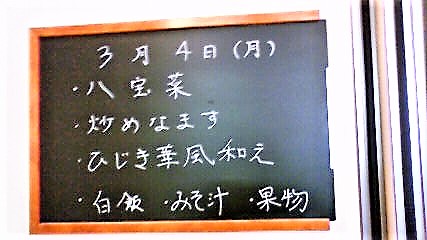 3月4日(月)
・八宝菜
・炒めなます
・ひじき華風和え
・白飯 ・みそ汁 ・果物